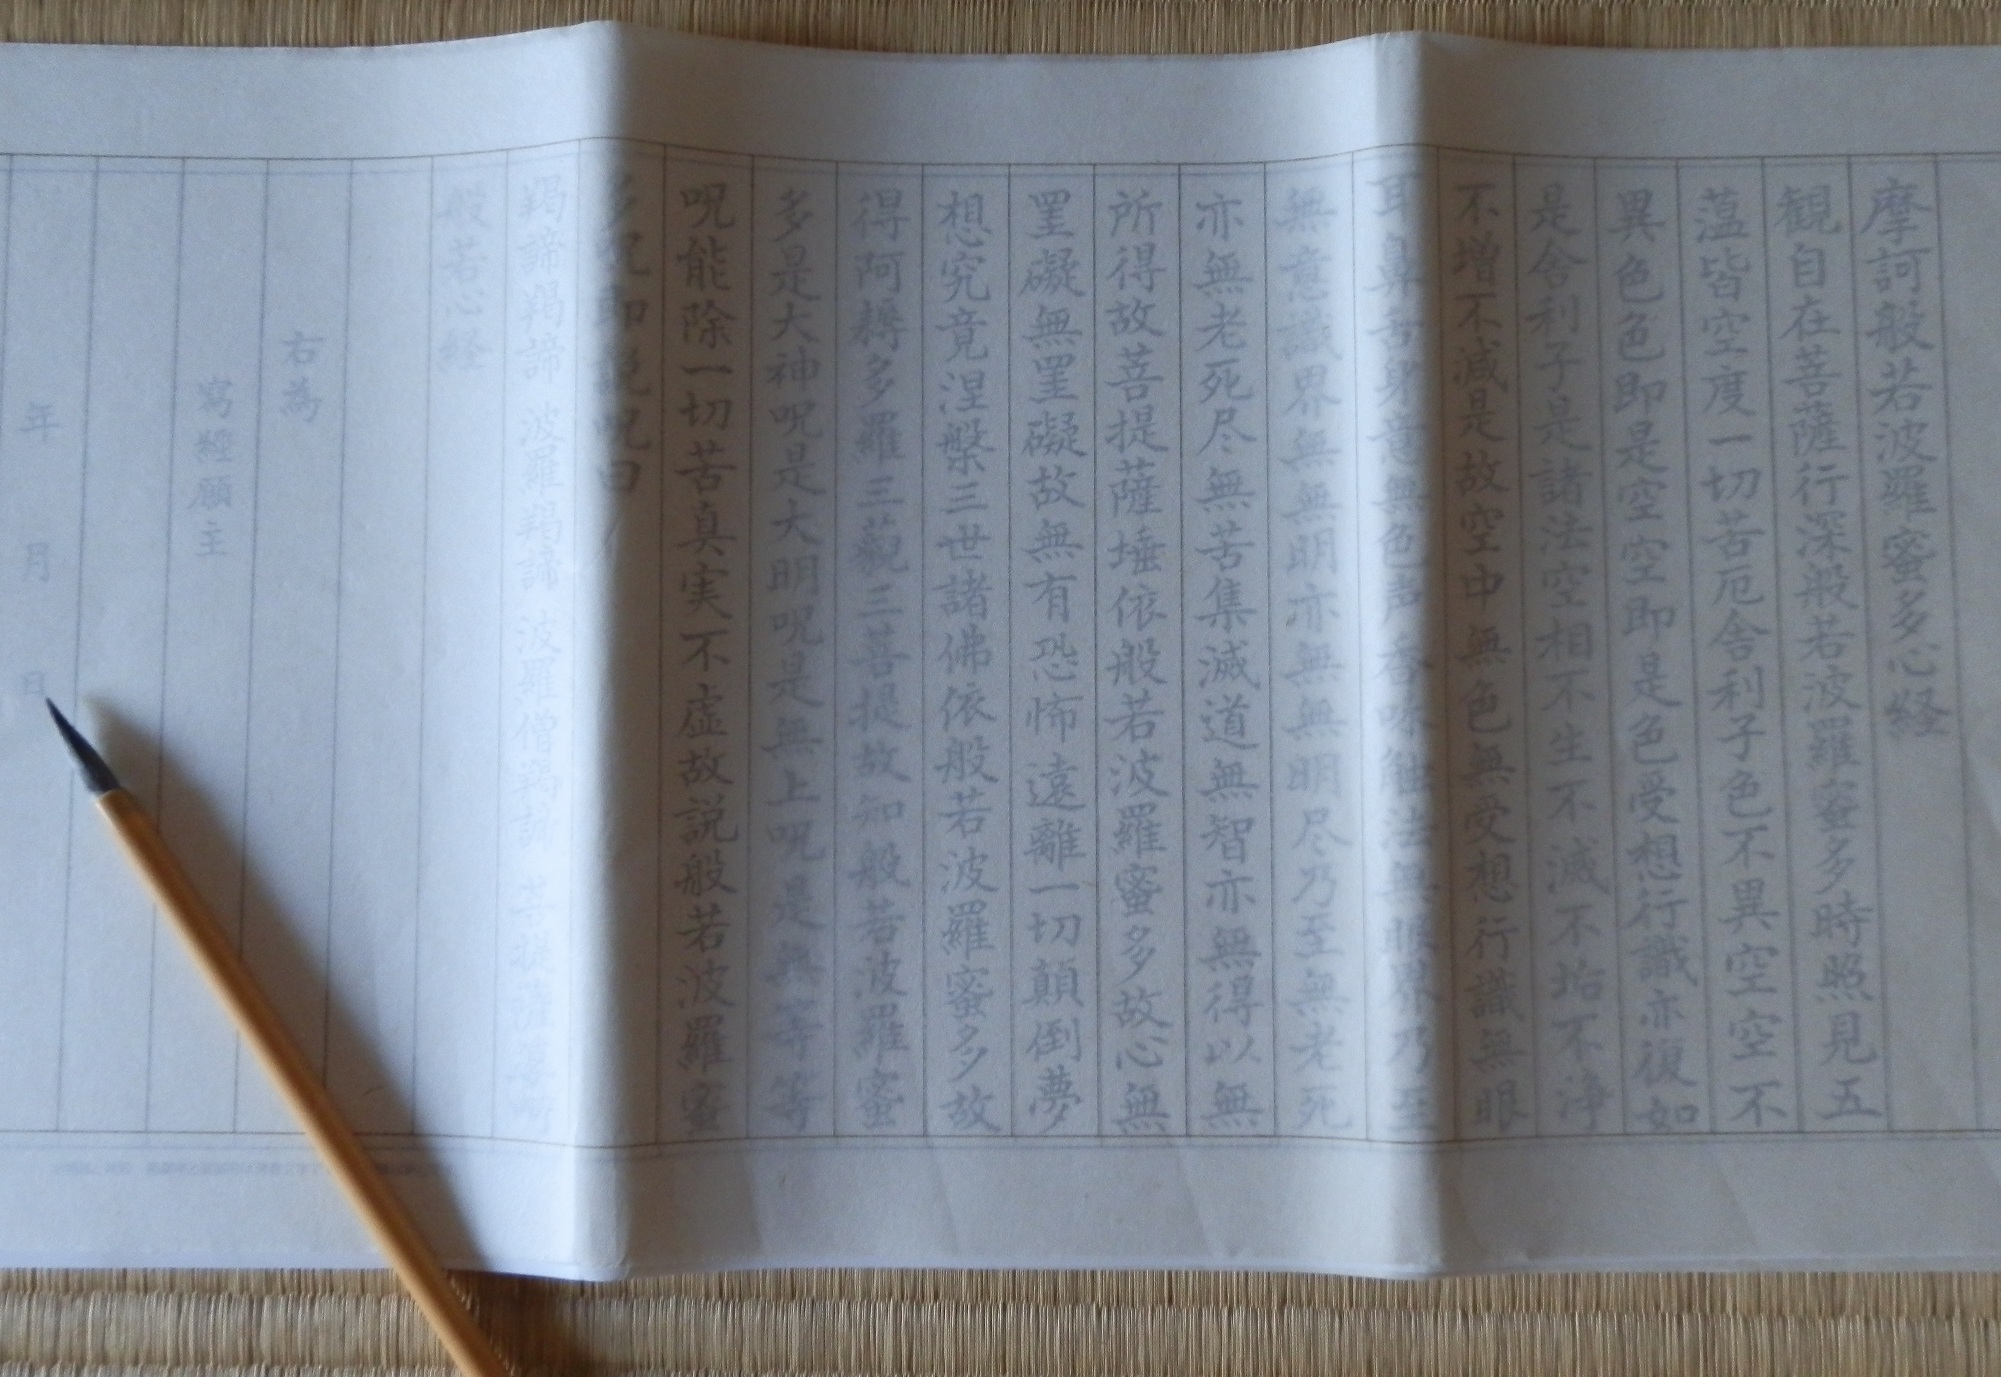 摩訶般若波羅蜜多心経
観自在菩薩行深般若波羅蜜多時照見五
薀皆空度一切苦厄舎利子色不異空空不
異色色即是空空即是色受想行識亦復如
是舎利子是諸法空相不生不滅不垢不浄
不増不減是故空中無色無受想行識無眼
耳鼻舌身意無色声香味触法無眼界乃至
無意識界無無明亦無無明尽乃至無老死
亦無老死尽無苦集滅道無智亦無得以無
所得故菩提薩埵依般若波羅蜜多故心無
罣礙無罣礙故無有恐怖遠離一切顛倒夢
想究竟涅槃三世諸佛依般若波羅蜜多故
得阿耨多羅三藐三菩提故知般若波羅蜜
多是大神呪是大明呪是無上呪是無等等
呪能除一切苦真実不虚故説般若波羅蜜
多呪即説呪曰
羯諦羯諦 波羅羯諦 波羅僧羯諦 菩提薩婆訶
般若心経
右為
寫經願主
年 月 日